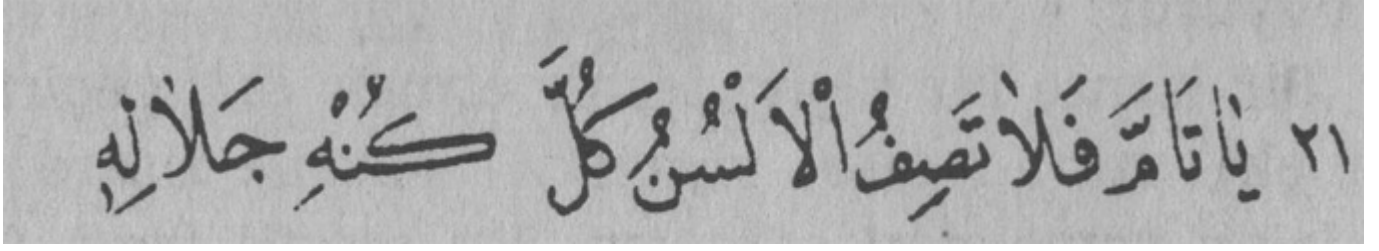 ٢١ يَا تَامَّ فَلاٰ تَصِفُ الْاَلْسُنُ كُلَّ كُنْهِ جَلاٰلِهِ